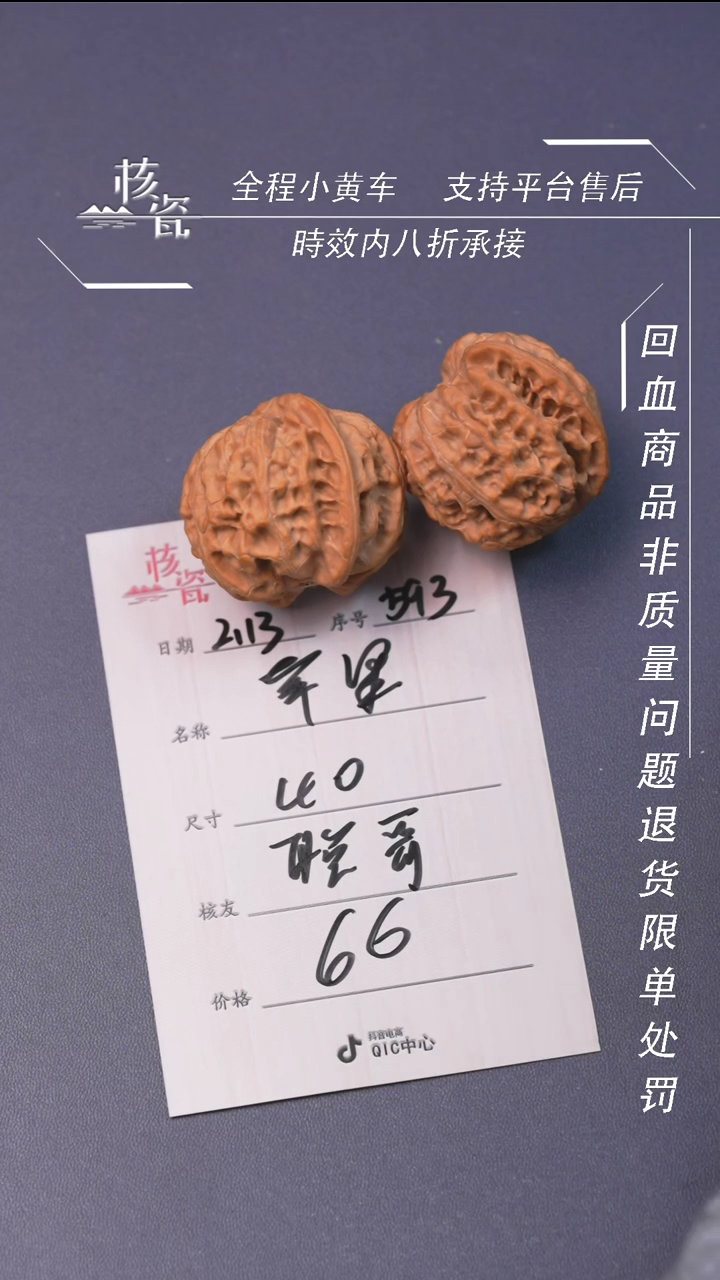 核瓷
全程小黄车 支持平台售后
時效内八折承接
回血商品非质量问题退货限单处罚
核瓷
日期 2.13 序号 593
名称
尺寸 40
核友 聪哥
价格 66
抖音电商
QIC中心